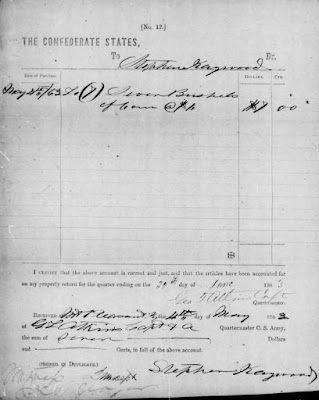 [No. 12.]
THE CONFEDERATE STATES,
To Stephen Haywood Dr.
Date of Purchase. DOLLARS. CTS.
May 4th/63 To (7) Seven Bushels
of Corn @ $1 $7 00
I CERTIFY that the above account is correct and just, and that the articles have been accounted for
on my property return for the quarter ending on the day of June 1863
Geo Capt
Quartermaster.
RECEIVED Mt Pleasant the 4th day of May 1863,
of G Atkins Capt & A Quartermaster C. S. Army,
the sum of Seven Dollars
and Cents, in full of the above account.
[SIGNED IN DUPLICATE.]
Stephen Haywood